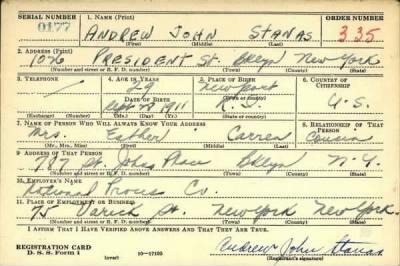 SERIAL NUMBER 1. NAME (Print) ORDER NUMBER
0177 ANDREW JOHN STANAS 335
(First) (Middle) (Last)
2. ADDRESS (Print)
1026 PRESIDENT St. Bklyn New York
(Number and street or R. F. D. number) (Town) (County) (State)
3. TELEPHONE 4. AGE IN YEARS 5. PLACE OF BIRTH 6. COUNTRY OF CITIZENSHIP
29 Newport
DATE OF BIRTH (Town or county)
1911 R.I. U.S.
(Exchange) (Number) (Mo.) (Day) (Yr.) (State or country)
7. NAME OF PERSON WHO WILL ALWAYS KNOW YOUR ADDRESS 8. RELATIONSHIP OF THAT PERSON
Mrs. Esther Cousin
(Mr., Mrs., Miss) (First) (Middle) (Last)
9. ADDRESS OF THAT PERSON
787 St. Johns Place Bklyn N.Y.
(Number and street or R. F. D. number) (Town) (County) (State)
10. EMPLOYER'S NAME
National Process Co.
11. PLACE OF EMPLOYMENT OR BUSINESS
75 Varick St. New York New York.
(Number and street or R. F. D. number) (Town) (County) (State)
I AFFIRM THAT I HAVE VERIFIED ABOVE ANSWERS AND THAT THEY ARE TRUE.
REGISTRATION CARD
D. S. S. Form 1 (over) 16—17105 Andrew John Stanas
(Registrant's signature)